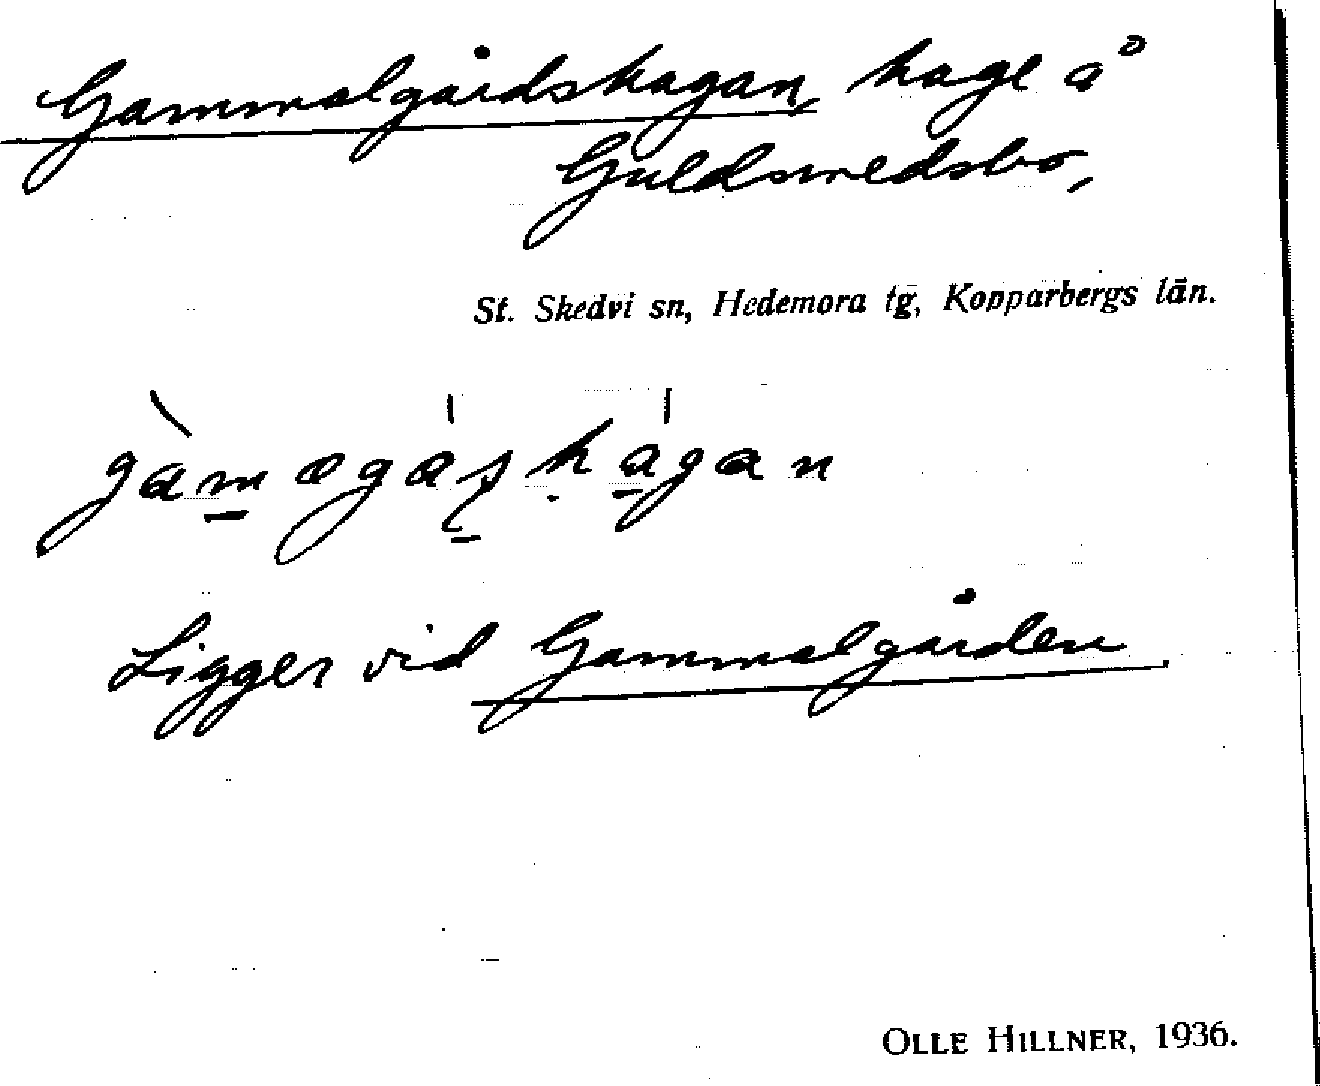 Gammalgårdshagan, hage å
Guldsmedsbo,
St. Skedvi sn, Hedemora tg, Kopparbergs län.
Ligger vid Gammalgården
OLLE HILLNER, 1936.